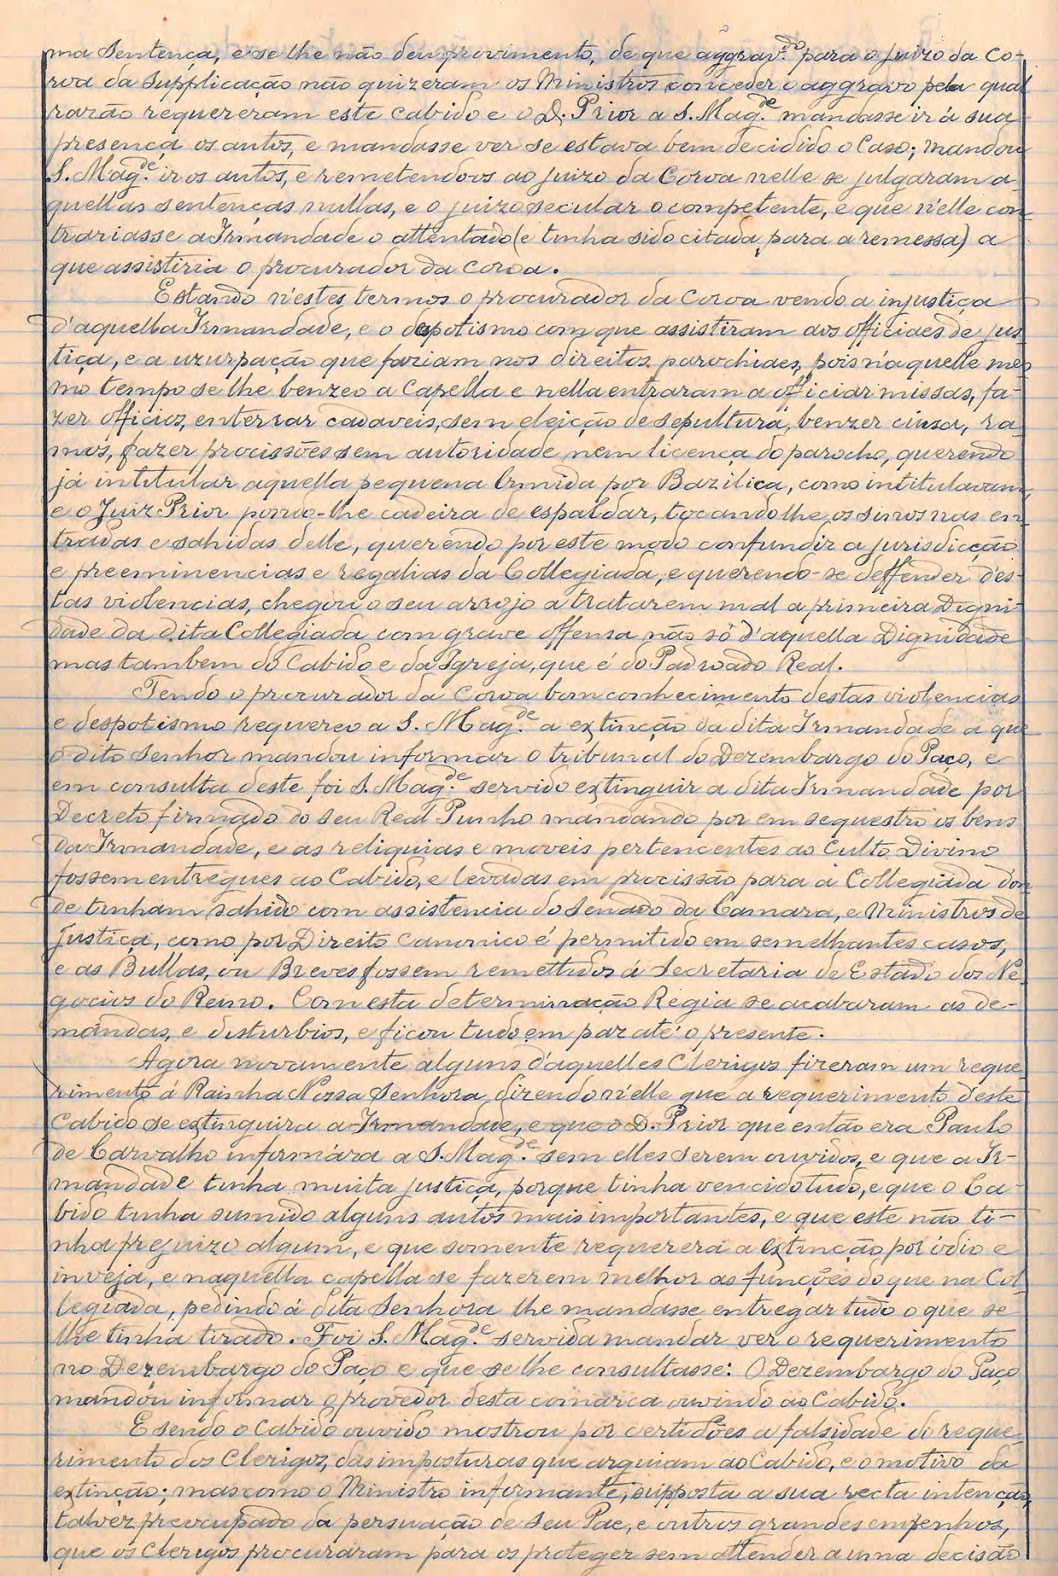 ma Sentença, e se lhe não deu provimento, de que aggrav.do para o Juizo da Co-
roa da Supplicação não quizeram os Ministros conceder o aggravo pela qual
razão requereram este cabido e o D. Prior a S. Mag.de mandasse ir á sua
presença os autos, e mandasse ver se estava bem decidido o Caso; mandou
S. Mag.de ir os autos, e remetendoos ao Juizo da Coroa nelle se julgaram a-
quellas sentenças nullas, e o juizo secular o competente, e que n'elle con-
trariasse a Irmandade o attentado (e tinha sido citada para a remessa) a
que assistiria o procurador da Coroa.
Estando n'estes termos o procurador da Coroa vendo a injustiça
d'aquella Irmandade, e o despotismo com que assistiram aos officiaes de jus
tiça, e a uzurpação que faziam nos direitos parochiaes, pois n'aquelle mes
mo tempo se lhe benzeo a Capella e nella entraram a officiar missas, fa-
zer officios, enterrar cadaveis, sem eleição de sepultura, benzer cinsa, ra-
mos, fazer procissões sem autoridade nem licença do parocho, querendo
já intitular aquella pequena Ermida por Bazilica, como intitulavam,
e o Juiz Prior pondo-lhe cadeira de espaldar, tocandolhe os sinos nas en-
tradas e sahidas delle, querendo por este modo confundir a jurisdicção
e preeminencias e regalias da Collegiada, e querendo-se deffender d'es-
tas violencias, chegou o seu arrojo a tratarem mal a primeira Digni-
dade da dita Collegiada com grave offensa não só d'aquella Dignidade
mas tambem do Cabido e da Igreja, que é do Padroado Real.
Tendo o procurador da Coroa bom conhecimento destas violencias
e despotismo requereo a S. Mag.de a extincção da dita Irmandade a que
o dito Senhor mandou informar o tribunal do Dezembargo do Paço, e
em consulta deste foi S. Mag.de servido extinguir a dita Irmandade por
Decreto firmado do seu Real Punho mandando por em sequestro os bens
da Irmandade, e as reliquias e moveis pertencentes ao Culto Divino
fossem entregues ao Cabido, e levadas em procissão para a Collegiada don
de tinham sahido com assistencia do Senado da Camara, e Ministros de
Justiça, como por Direito canonico é permitido em semelhantes casos,
e as Bullas, ou Breves fossem remettidos á Secretaria de Estado dos Ne-
gocios do Reino. Com esta determinação Regia se acabaram as de-
mandas, e disturbios, e ficou tudo em paz até o presente.
Agora novamente alguns d'aquelles Clerigos fizeram um reque
rimento á Rainha Nossa Senhora, dizendo n'elle que a requerimento d'este
Cabido se extinguira a Irmandade, e que o D. Prior que então era Paulo
de Carvalho informára a S. Mag.de sem elles serem ouvidos, e que a Ir-
mandade tinha muita justiça, porque tinha vencido tudo, e que o Ca-
bido tinha sumido alguns autos mais importantes, e que este não ti-
nha prejuizo algum, e que somente requerera a extincção por ódio e
inveja, e naquella capella se fazerem melhor as funções do que na Col
legiada, pedindo á dita Senhora lhe mandasse entregar tudo o que se
lhe tinha tirado. Foi S. Mag.de servida mandar ver o requerimento
no Dezembargo do Paço e que se lhe consultasse: O Dezembargo do Paço
mandou informar o provedor desta comarca ouvindo ao Cabido.
E sendo o Cabido ouvido mostrou por certidões a falsidade do reque
rimento dos Clerigos, das imposturas que arguiam ao Cabido, e o motivo da
extinção; mas como o Ministro informante, supposta a sua recta intenção,
talvez preocupado da persuação de seu Pae, e outros grandes empenhos,
que os Clerigos procuraram para os proteger sem attender a uma decisão